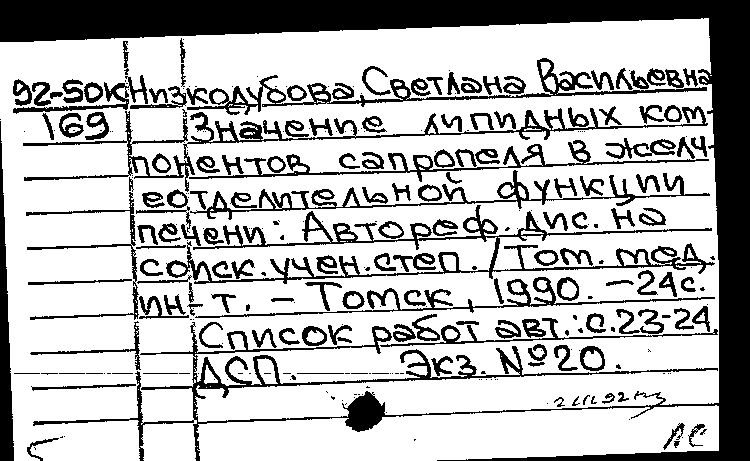 92-50К Низкодубова, Светлана Васильевна
169 Значение липидных ком-
понентов сапропеля в желч-
еотделительной функции
печени: Автореф. дис. на
соиск. учен. степ. / Том. мед.
ин-т. - Томск, 1990. - 24с.
Список работ авт.: с.23-24.
ДСП. Экз. №20.
ЛС